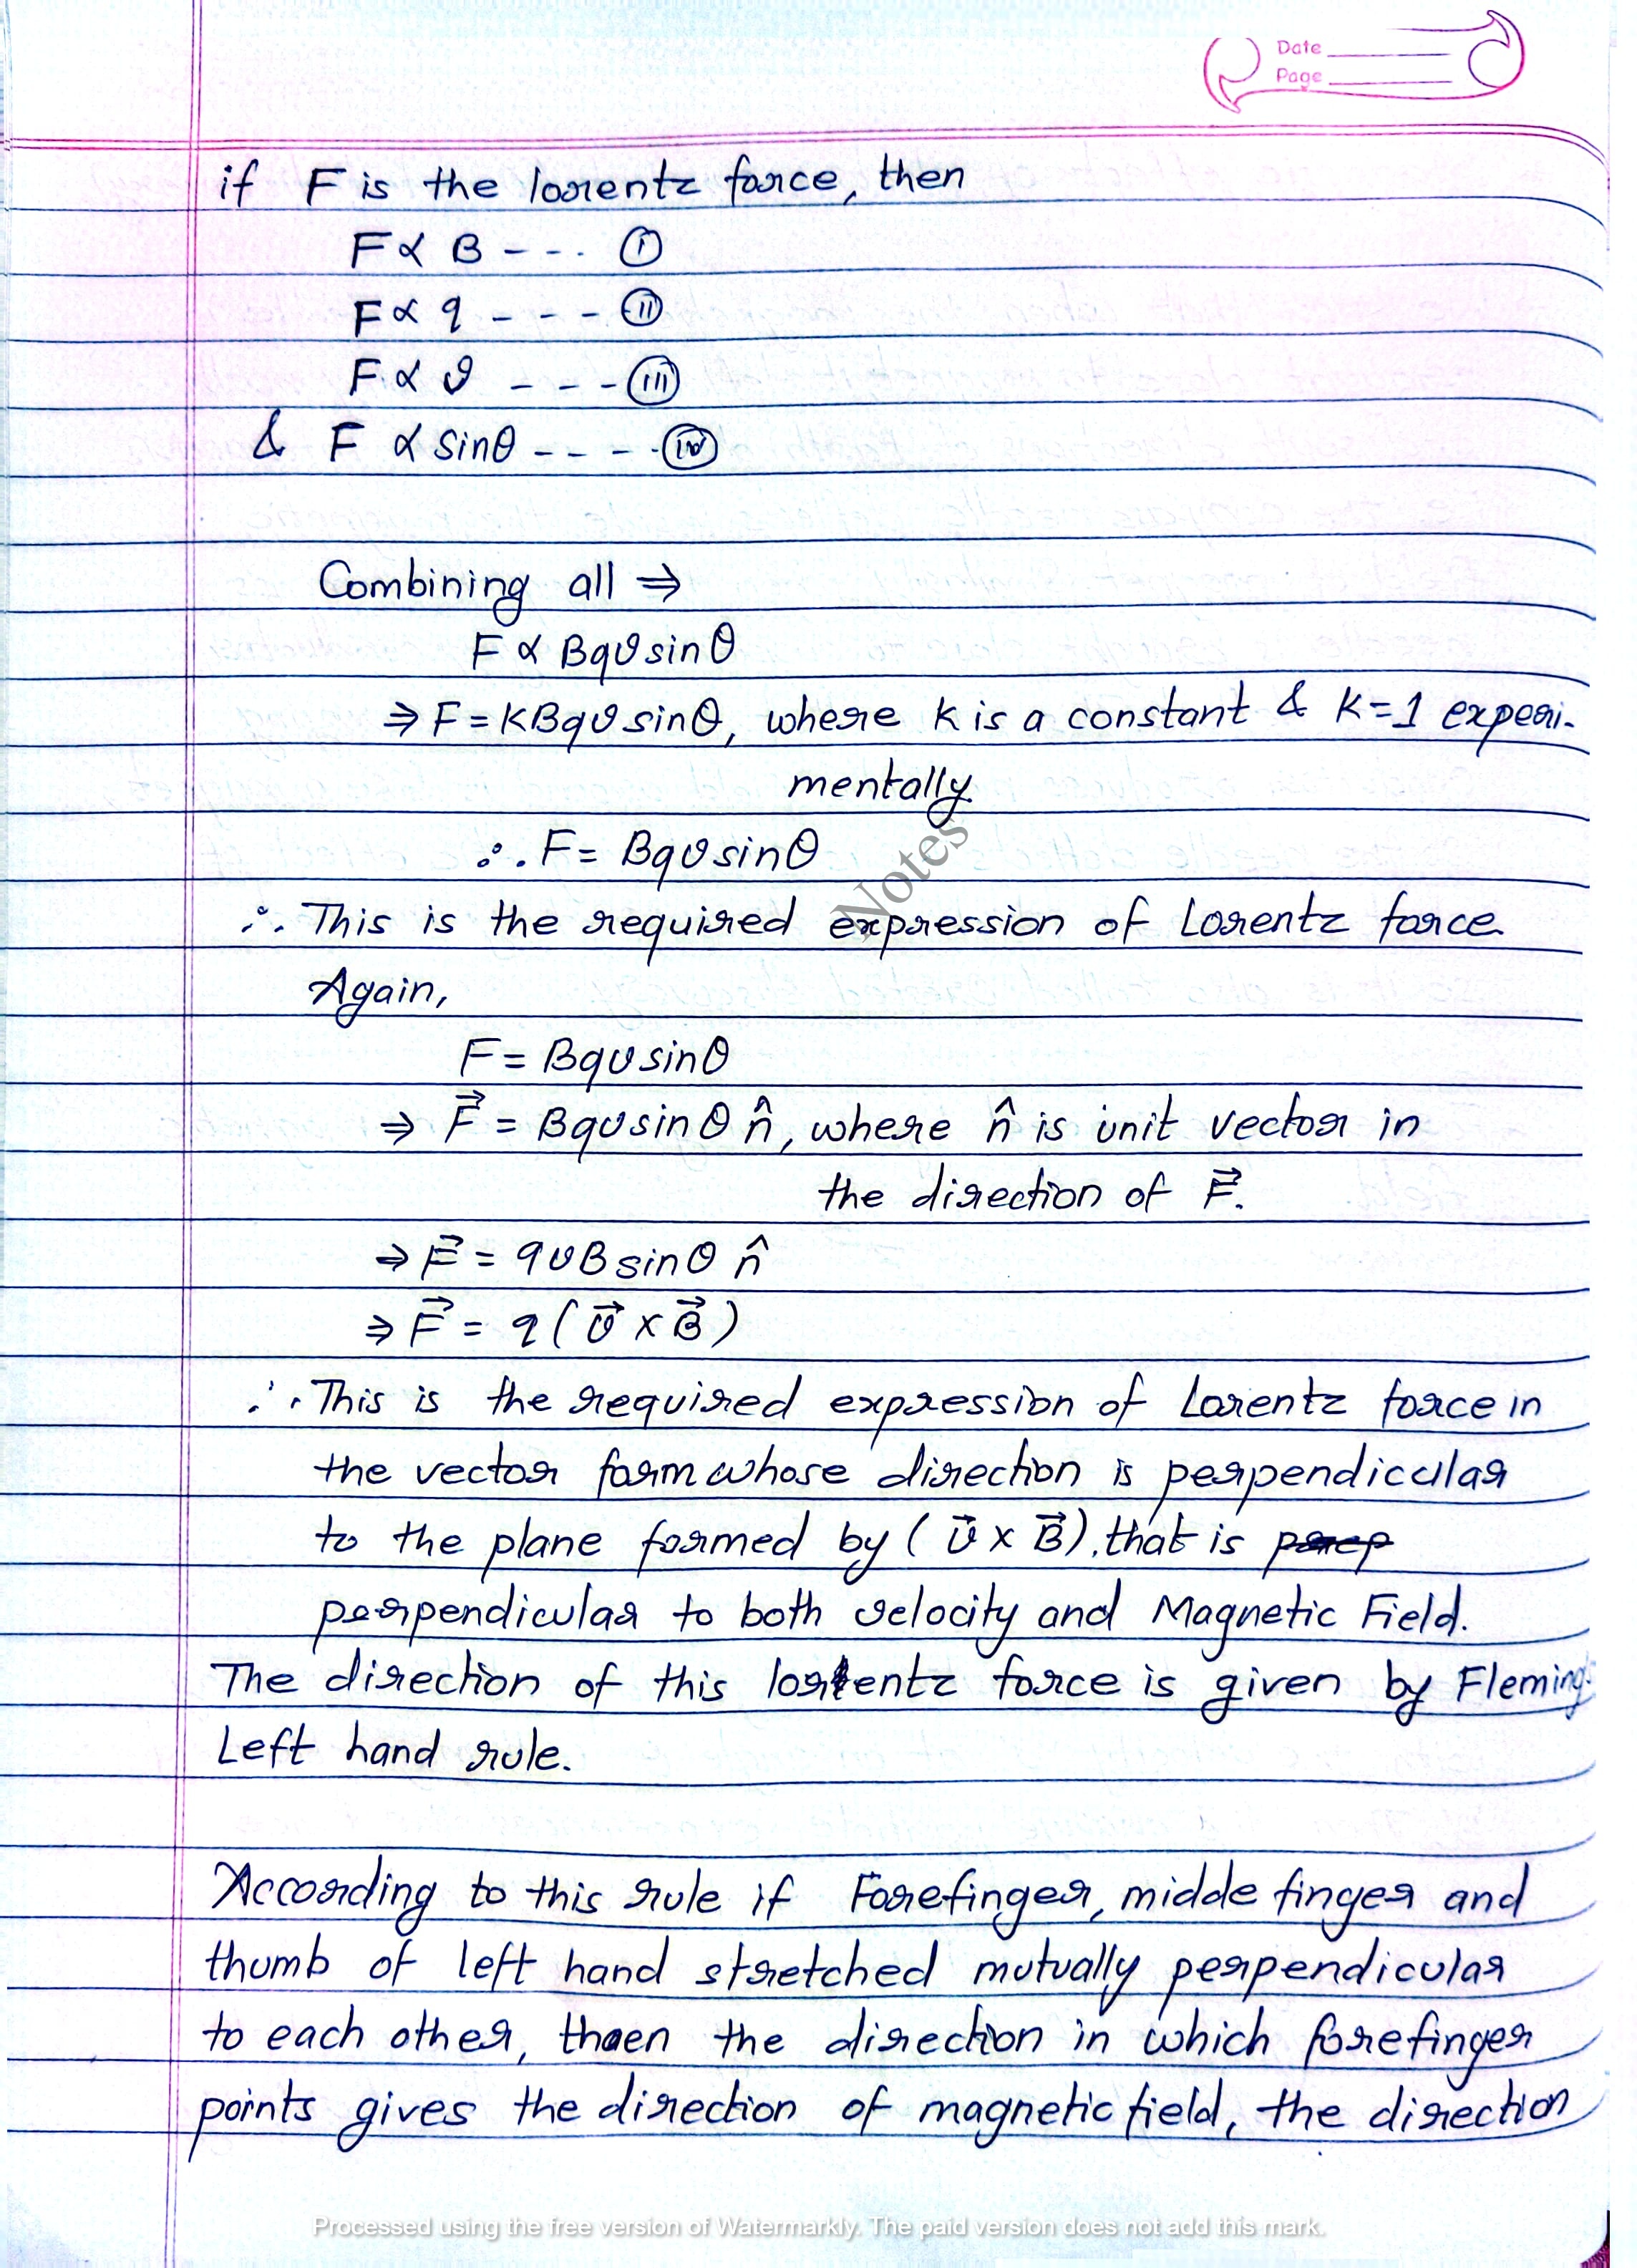 Date
Page
if F is the lorentz force, then
F ∝ B - - - (i)
F ∝ q - - - (ii)
F ∝ v - - - (iii)
& F ∝ sinθ - - - - (iv)
Combining all ⇒
F ∝ Bqvsinθ
⇒ F = KBqvsinθ, where K is a constant & K=1 experi-
mentally
∴ F = Bqvsinθ
Notes
∴ This is the required expression of Lorentz force.
Again,
F = Bqvsinθ
⇒ F⃗ = Bqvsinθ n̂, where n̂ is unit vector in
the direction of F⃗.
⇒ F⃗ = qvBsinθ n̂
⇒ F⃗ = q(v⃗ × B⃗)
∴ This is the required expression of Lorentz force in
the vector form whose direction is perpendicular
to the plane formed by (v⃗ × B⃗), that is
perpendicular to both velocity and Magnetic Field.
The direction of this lorentz force is given by Fleming's
Left hand rule.
According to this rule if Forefinger, midde finger and
thumb of left hand stretched mutually perpendicular
to each other, then the direction in which forefinger
points gives the direction of magnetic field, the direction
Processed using the free version of Watermarkly. The paid version does not add this mark.